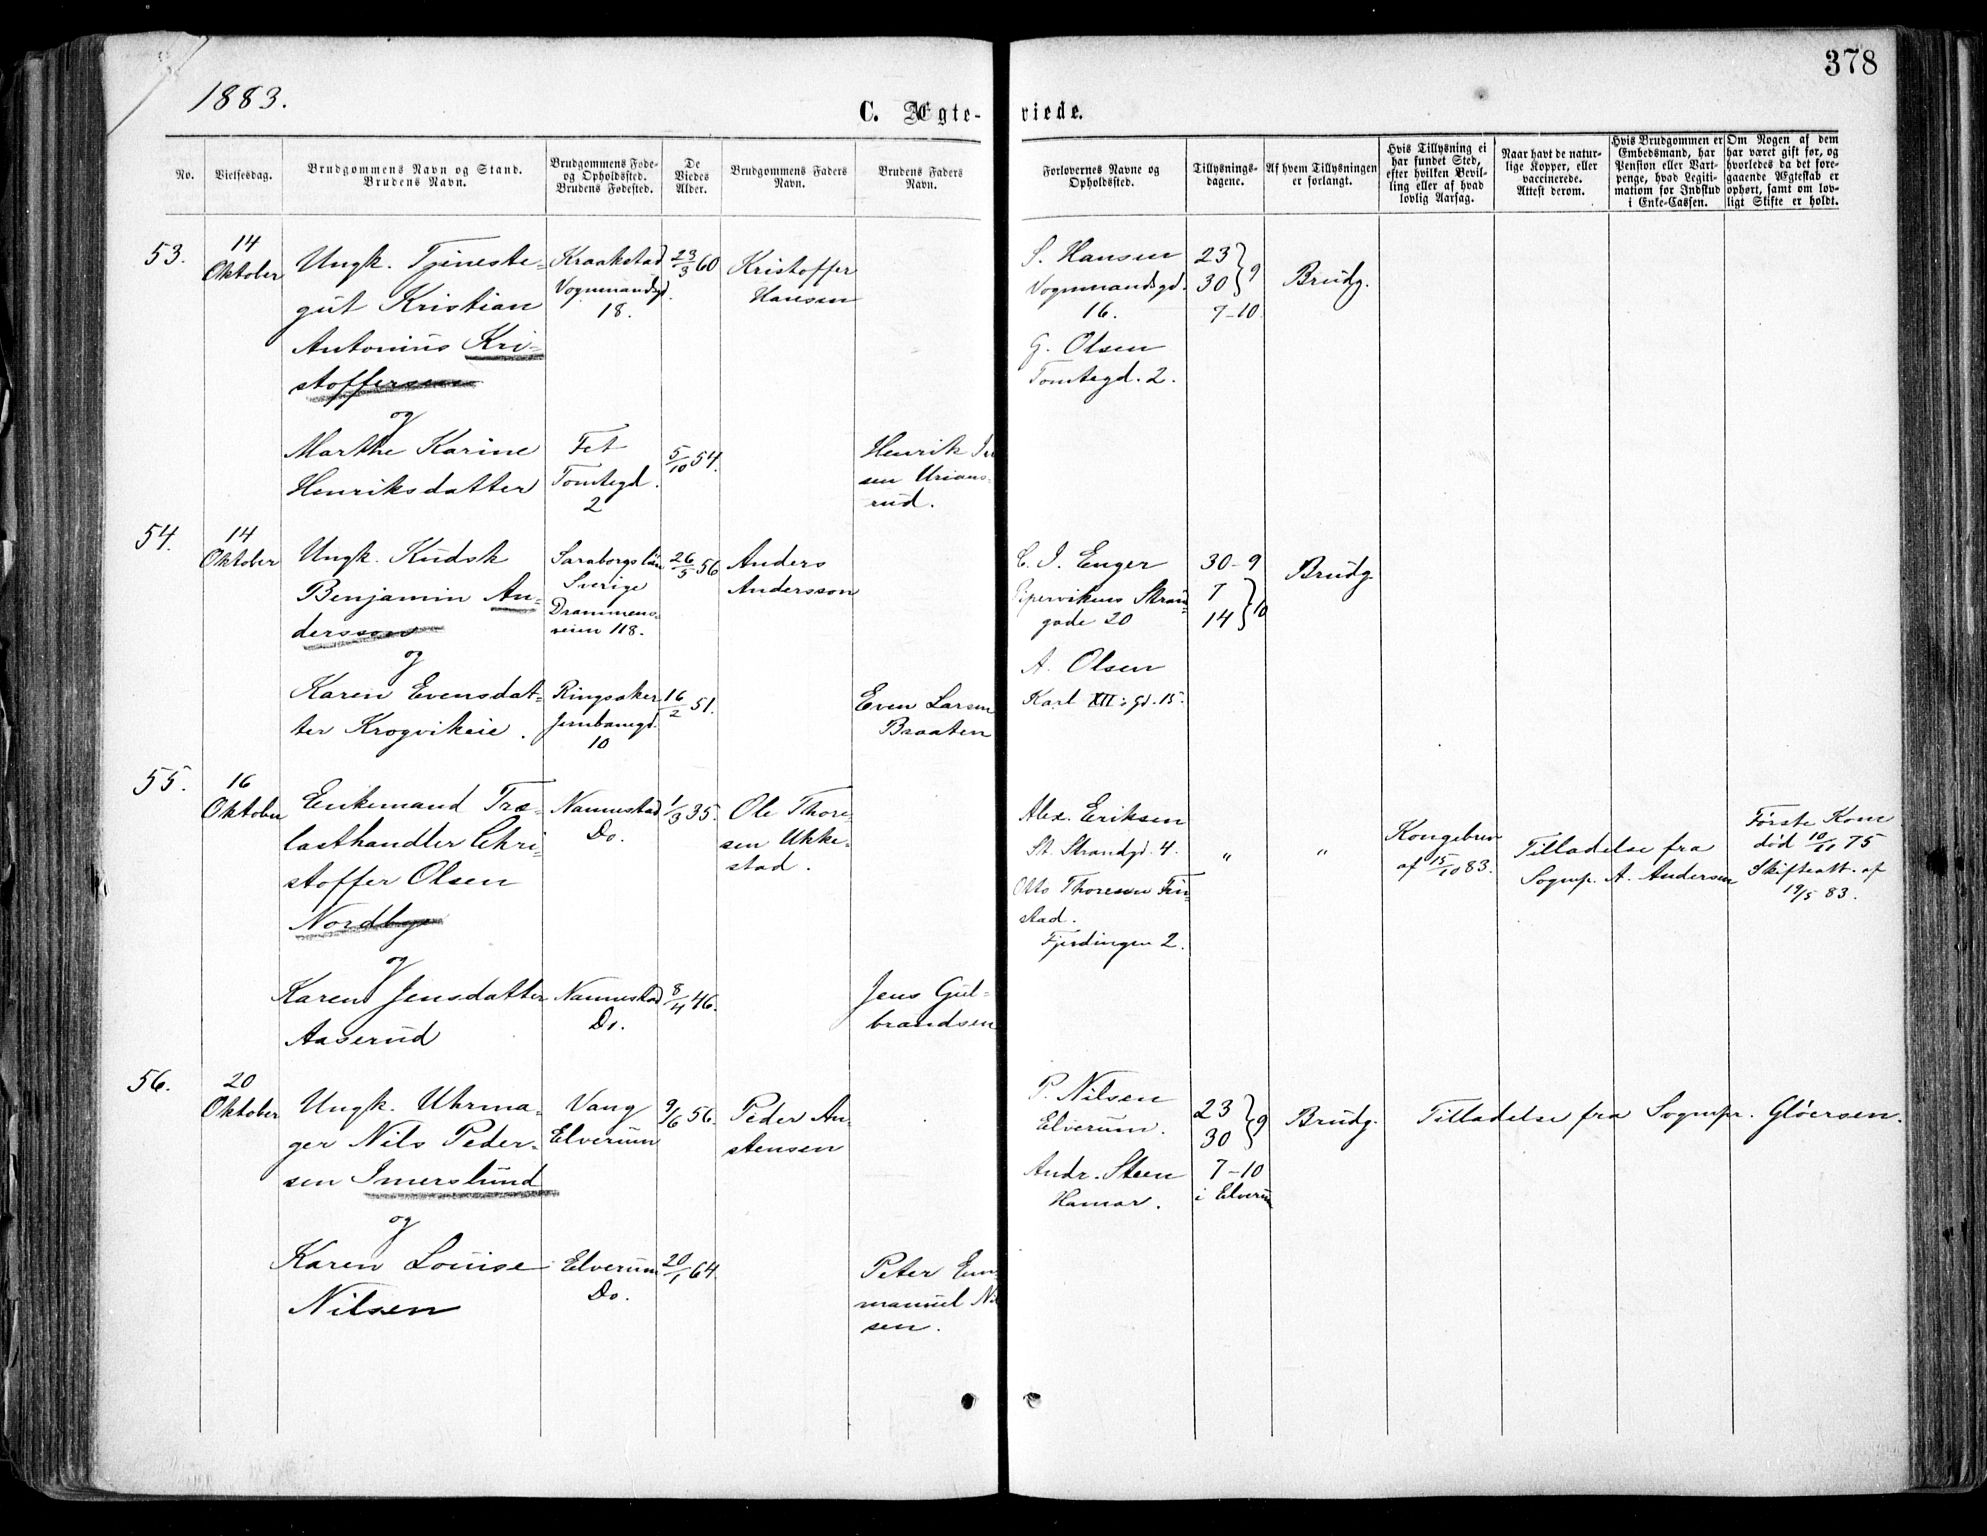 1883.
378
C. Ægte-
viede.
No.
Vielsesdag.
Brudgommens Navn og Stand.
Brudens Navn.
Brudgommens Føde-
og Opholdssted.
Brudens Fødested.
De
Viedes
Alder.
Brudgommens Faders
Navn.
Brudens Faders
Navn.
Forlovernes Navne og
Opholdssted.
Tillysnings-
dagene.
Af hvem Tillysningen
er forlangt.
Hvis Tillysning ei
har fundet Sted,
efter hvilken Bevil-
ling eller af hvad
lovlig Aarsag.
Naar havt de natur-
lige Kopper, eller
vaccinerede.
Attest derom.
Hvis Brudgommen er
Embedsmand, har
Pension eller Vart-
penge, hvad Legiti-
mation for Indskud
i Enke-Cassen.
Om Nogen af dem
har været gift før, og
hvorledes da det fore-
gaaende Ægteskab er
ophørt, samt om lov-
ligt Skifte er holdt.
53.
14
Oktober
Ungk. Tjeneste-
gut Kristian
Antonius Kri-
stoffersen
og
Marthe Karine
Henriksdatter
Kraakstad
Vognmandsgd.
18.
Fet
Tomtegd.
2
23/3 60
5/10 54.
Kristoffer
Hansen
Henrik
sen Urians-
rud.
S. Hansen
Vognmandsgd.
16.
G. Olsen
Tomtegd. 2.
23
30 } 9
7-10.
Brudg.
54.
14
Oktober
Ungk. Kudsk
Benjamin An-
dersson
og
Karen Evensdat-
ter Krogvikeie.
Saraborgslän
Sverige
Drammens-
veien 118.
Ringsaker
Jernbanegd.
10
26/5 56
16/2 51.
Anders
Andersson
Even Larsen
Braaten
C. J. Enger
Pipervikens Stran-
gade 20
A. Olsen
Karl XII: gd. 15.
30-9
7
14 } 10
Brudg.
55.
16
Oktober
Enkemand Træ-
lasthandler Chri-
stoffer Olsen
Nordbye
og
Karen Jensdatter
Aaserud
Nannestad
Do.
Nannestad
Do.
1/3 35.
8/4 46.
Ole Thore-
sen Ukke-
stad.
Jens Gul-
brandsen
Alex. Eriksen
St. Strandgd. 4.
Otto Thoresen Fin-
stad.
Fjerdingen 2.
"
"
Kongebrev
af 15/10 83.
Tilladelse fra
Sognepr. A. Andersen
Første Kone
død 10/11 75
Skifteatt. af
19/5 83.
56.
20
Oktober
Ungk. Uhrma-
ger Nils Peder-
sen Imerslund
og
Karen Louise
Nilsen
Vang
Elverum
Elverum
Do.
9/6 56.
20/1 64.
Peder An-
stensen
Peter Em-
manuel Nil
sen.
P. Nilsen
Elverum.
Andr. Steen
Hamar.
23
30 } 9
7-10
i Elverum
Brudg.
Tilladelse fra Sognepr. Gløersen.